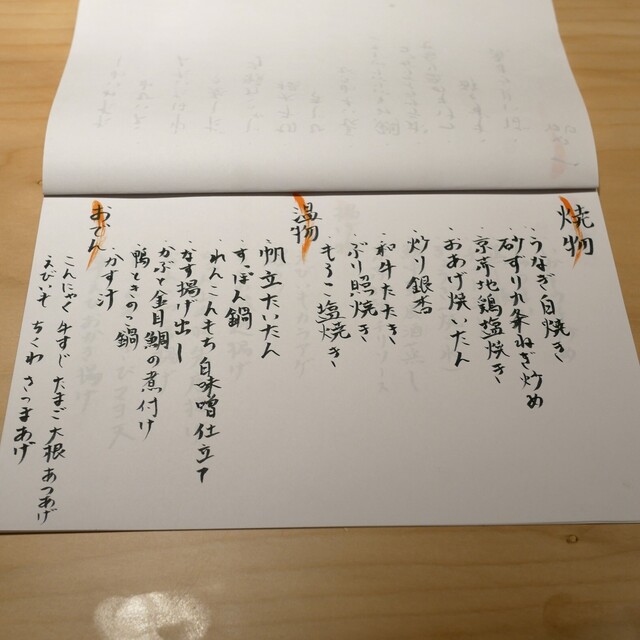 焼物
・うなぎ白焼き
・砂ずり九条ねぎ炒め
・京赤地鶏塩焼き
・おあげ焼いたん
・炒り銀杏
・和牛たたき
・ぶり照焼き
・もろこ塩焼き
温物
・帆立たいたん
・すっぽん鍋
・れんこんもち白味噌仕立て
・なす揚げ出し
・かぶと金目鯛の煮付け
・鴨ときのこ鍋
・かす汁
おでん
こんにゃく 牛すじ たまご 大根 あつあげ
えびいも ちくわ さつまあげ